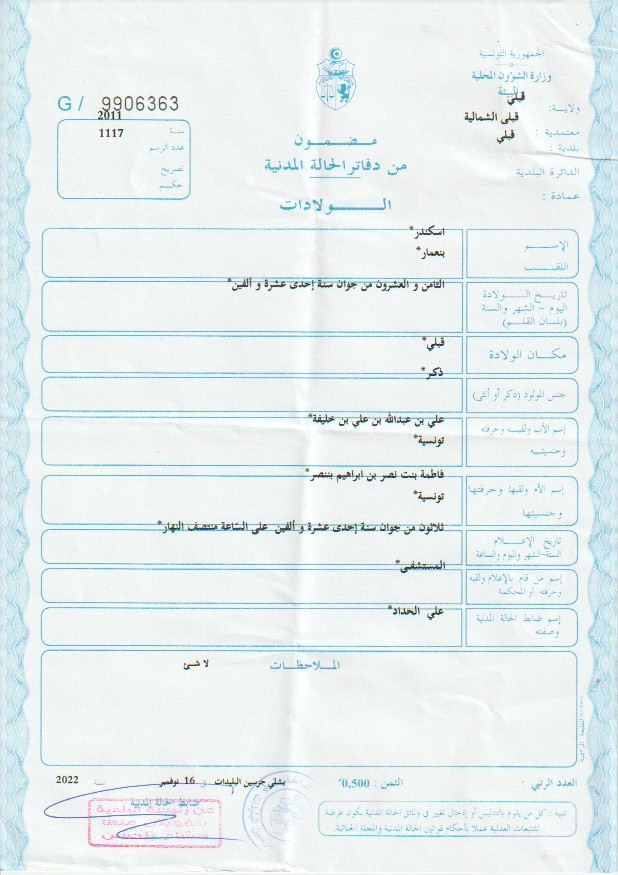 الجمهورية التونسية
وزارة الشؤون المحلية
و البيئة
ولاية: قبلي
معتمدية : قبلى الشمالية
بلدية : قبلي
الدائرة البلدية
عمادة :
G / 9906363
سنة 2011
عدد الرسم 1117
تصريح
حكم
مضمون
من دفاتر الحالة المدنية
الولادات
الإسم
اسكندر*
اللقب
بنعمار*
تاريخ الولادة
اليوم - الشهر والسنة
(بلسان القلم)
الثامن و العشرون من جوان سنة إحدى عشرة و ألفين*
مكان الولادة
قبلي*
جنس المولود (ذكر أو أنثى)
ذكر*
إسم الأب ولقبه وحرفته
وجنسيته
علي بن عبدالله بن علي بن خليفة*
تونسية*
إسم الأم ولقبها وحرفتها
وجنسيتها
فاطمة بنت نصر بن ابراهيم بننصر*
تونسية*
تاريخ الإعلام
السنة-الشهر واليوم والساعة
ثلاثون من جوان سنة إحدى عشرة و ألفين على الساعة منتصف النهار*
إسم من قام بالإعلام ولقبه
وحرفته أو المحكمة
المستشفى*
إسم ضابط الحالة المدنية
وصفته
علي الحداد*
الملاحظات
لا شئ
المطبعة الرسمية
العدد الرتبي :
الثمن : 0,500
بشلي جرسين البليدات في 16 نوفمبر 2022
ضابط الحالة المدنية
تنبيه : كل من يقوم بالتدليس أو إدخال تغيير في وثائق الحالة المدنية يكون عرضة
للتتبعات العدلية عملا بأحكام قوانين الحالة المدنية والمجلة الجنائية.